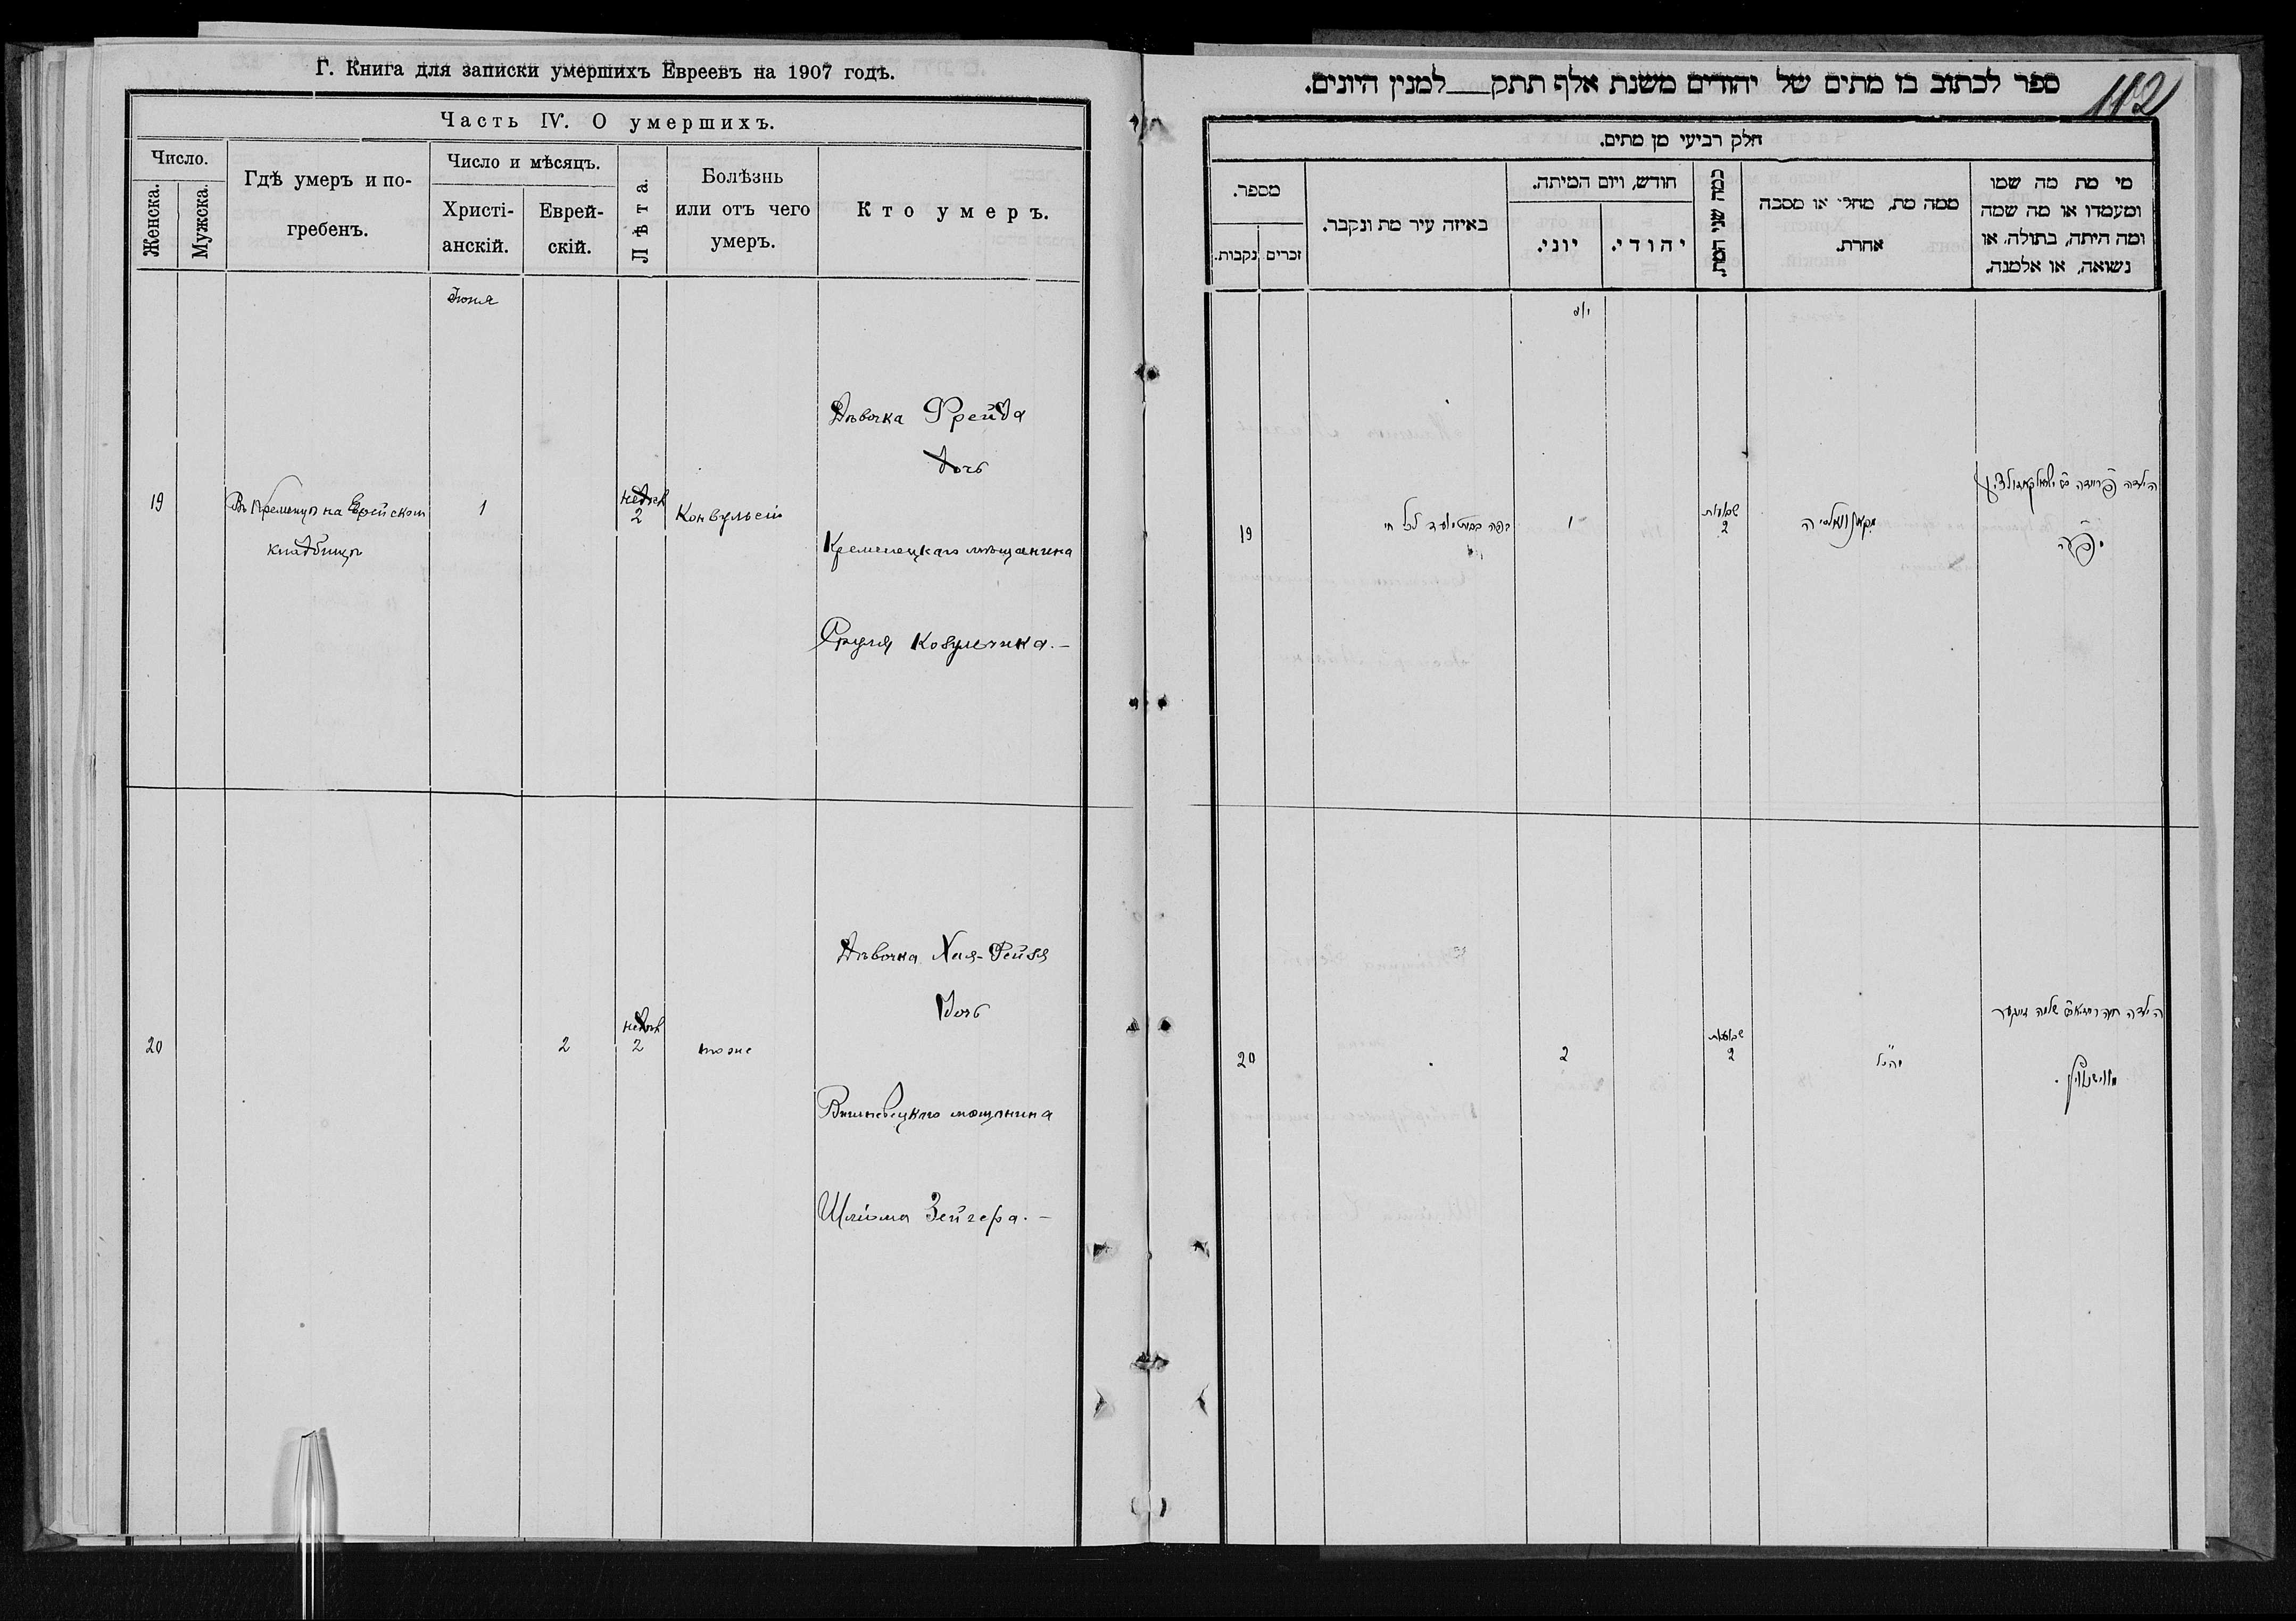 Г. Книга для записки умершихъ Евреевъ на 1907 годъ.
Часть IV. О умершихъ.
Число.
Женска.
Мужска.
Гдѣ умеръ и по-
гребенъ.
Число и мѣсяцъ.
Христі-
анскій.
Еврей-
скій.
Лѣта.
Болѣзнь
или отъ чего
умеръ.
Кто умеръ.
Іюня
19
Въ Кременцѣ на Еврейском
кладбищѣ
1
недѣль
2
Конвульсіи
Дѣвочка Фрейда
дочь
Кременецкаго мѣщанина
Сруля Ковульчика.—
20
2
недѣль
2
тоже
Дѣвочка Хая-Рейзя
дочь
Вишневецкаго мѣщанина
Шлёма Зейгера.—
112
ספר לכתוב בו מתים של יהודים משנת אלף תתק למנין היונים.
חלק רביעי מן מתים.
מספר.
נקבות.
זכרים
באיזה עיר מת ונקבר.
חודש, ויום המיתה.
יוני.
יהודי.
כמה שני המת.
ממה מת, מחלי או מסבה
אחרת.
מי מת מה שמו
ומעמדו או מה שמה
ומה היתה, בתולה, או
נשואה, או אלמנה.
19
1
שבועות
2
הילדה
20
2
שבועות
2
הילדה חיה